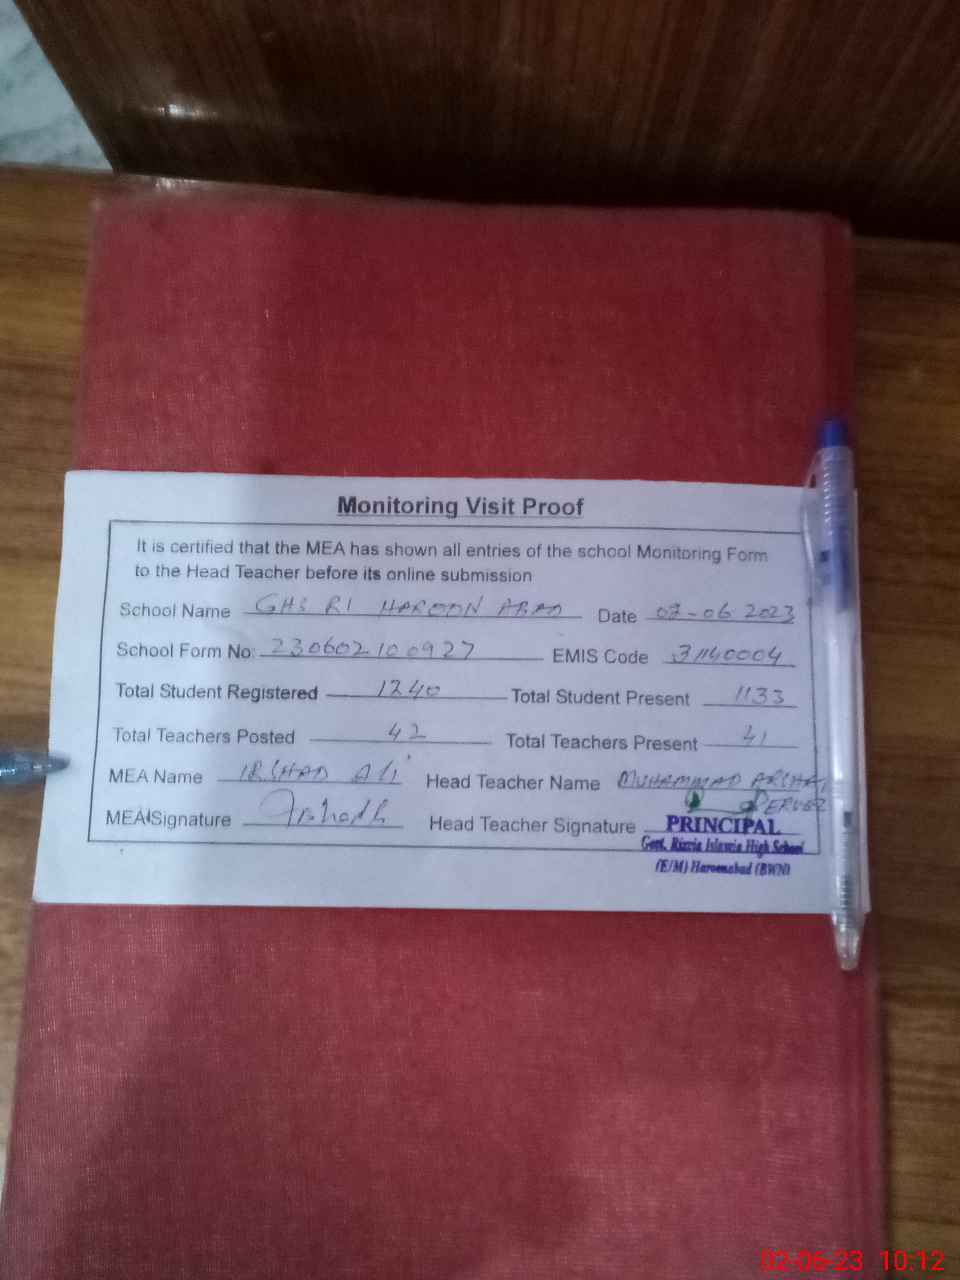 Monitoring Visit Proof
It is certified that the MEA has shown all entries of the school Monitoring Form
to the Head Teacher before its online submission
School Name GHS RI HAROON ABAD Date 02-06 2023
School Form No: 230602100927 EMIS Code 31140004
Total Student Registered 1240 Total Student Present 1133
Total Teachers Posted 42 Total Teachers Present 41
MEA Name IRSHAD Ali Head Teacher Name MUHAMMAD
PERVEZ
MEA Signature Irshadk Head Teacher Signature
PRINCIPAL
Govt. Rizvia Islamia High School
(E/M) Haroonabad (BWN)
02-06-23 10:12